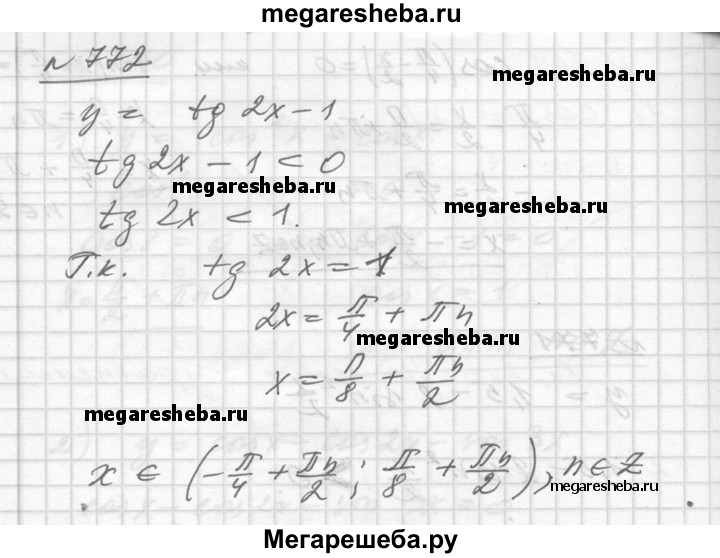 megaresheba.ru
№ 772
megaresheba.ru
y = tg 2x − 1
tg 2x − 1 < 0
megaresheba.ru
megaresheba.ru
tg 2x < 1.
Т.к. tg 2x = 1
2x = π/4 + πn
megaresheba.ru
x = π/8 + πn/2
megaresheba.ru
x ∈ (−π/4 + πn/2; π/8 + πn/2), n ∈ Z
megaresheba.ru
Мегарешеба.ру